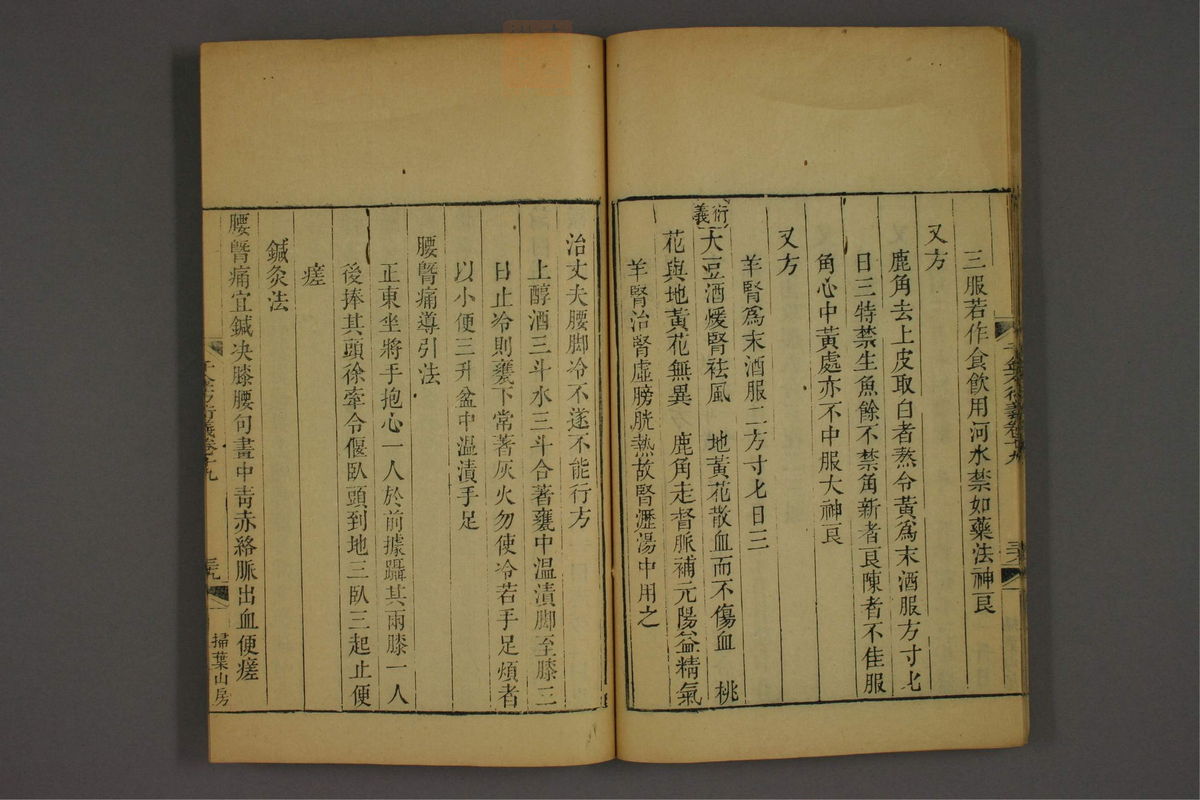 三服若作食飲用河水禁如藥法神良
又方
鹿角去上皮取白者熬令黃爲末酒服方寸匕
日三特禁生魚餘不禁角新者良陳者不佳服
角心中黃處亦不中服大神良
又方
羊腎爲末酒服二方寸匕日三
衍義 大豆酒煖腎祛風　地黃花散血而不傷血　桃
花與地黃花無異　鹿角走督脈補元陽益精氣
羊腎治腎虛膀胱熱故腎瀝湯中用之
治丈夫腰脚冷不遂不能行方
上醇酒三斗水三斗合著甕中温漬脚至膝三
日止冷則甕下常著灰火勿使冷若手足煩者
以小便三升盆中温漬手足
腰臀痛導引法
正東坐將手抱心一人於前據躡其兩膝一人
後捧其頭徐牽令偃臥頭到地三臥三起止便
瘥
鍼灸法
腰臀痛宜鍼决膝腰句畫中靑赤絡脈出血便瘥
千金方衍義卷十九
三九
掃葉山房